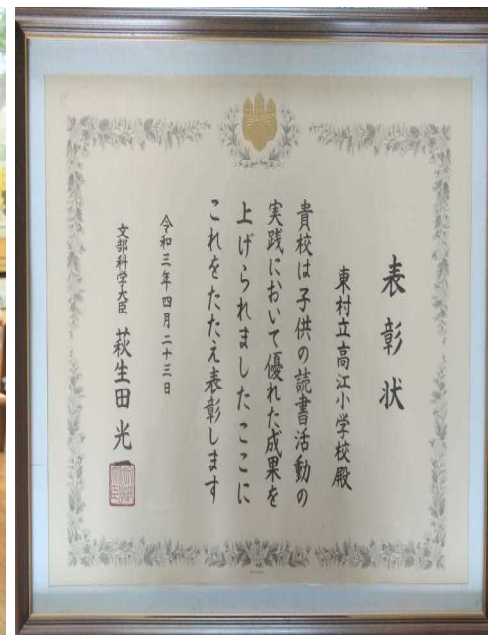 表彰状
東村立高江小学校殿
貴校は子供の読書活動の
実践において優れた成果を
上げられましたここに
これをたたえ表彰します
令和三年四月二十三日
文部科学大臣 萩生田光一